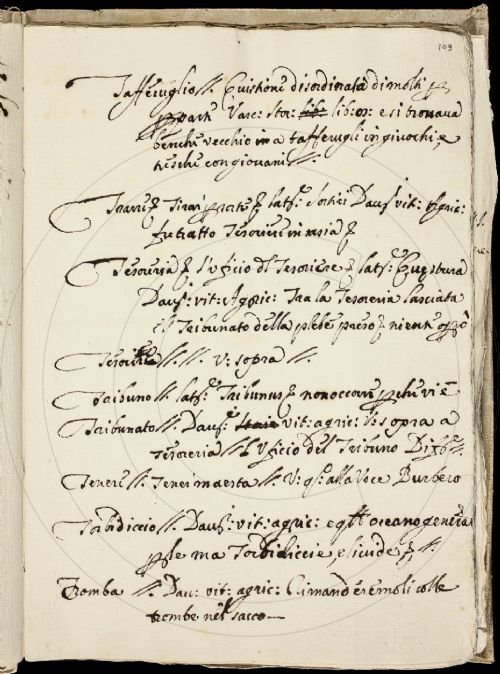 109
Tafferuglio //. Quistione disordinata di molti p
parti Varc: stor: lib: or: e si trovava
benche vecchio in a tafferugli in giuochi, e
tresche con giovani //.
Trarre Tirar p sorte lat: sortiri Dav: vit: Agric:
fu tratto Tesoriere in Asia
Tesoreria L'ufficio del Tesoriere lat: Quęstura
Dav: vit: Agric: Tra la Tesoreria lasciata
e il Tribunato della plebe preso niente
Tesoriere //. //. V: sopra //.
Tribuno //. lat: Tribunus non occorre perchi vi è
Tribunato //. Dav: vit: agric: V: sopra a
Tesoreria // L'ufficio del Tribuno
Tenere //. Tener maestà //. V: qs: alla Voce Burbero
Torbidiccio //. Dav: vit: agric: e qll oceano genera
ple ma Torbidiccie, e livide //.
Tromba //. Dav: vit: agric: Rimandereremoli colle
trombe nel sacco —